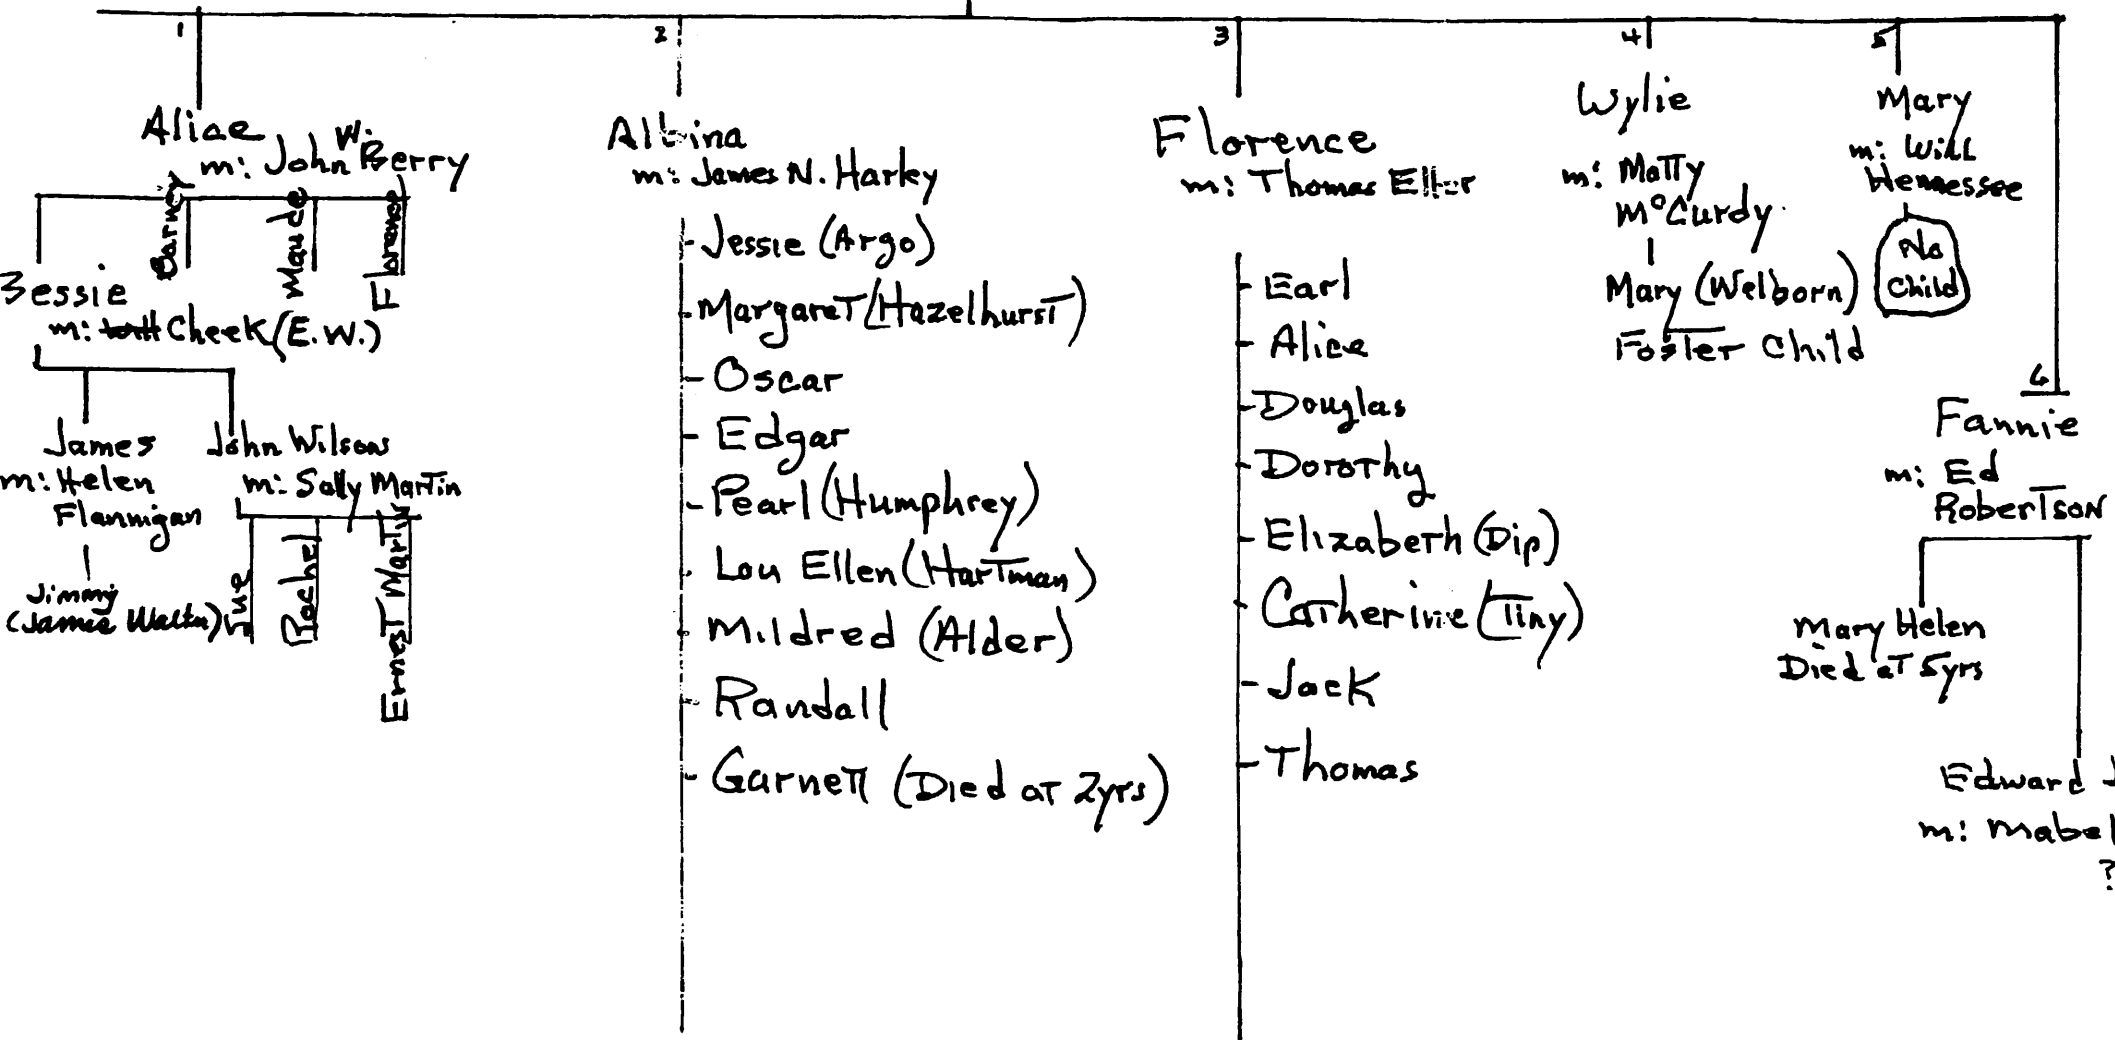 1
Alice
m: John W. Berry
Bessie
Barney
Maude
Florence
m: Cheek (E.W.)
James
m: Helen
Flannigan
Jimmy
(Jamie Walter)
John Wilson
m: Sally Martin
Sue
Rachel
Ernest Martin
2
Albina
m: James N. Harley
Jessie (Argo)
Margaret (Hazelhurst)
Oscar
Edgar
Pearl (Humphrey)
Lou Ellen (Hartman)
Mildred (Alder)
Randall
Garnett (Died at 2yrs)
3
Florence
m: Thomas Eller
Earl
Alice
Douglas
Dorothy
Elizabeth (Dip)
Catherine (Tiny)
Jack
Thomas
4
Wylie
m: Matty
McCurdy
Mary (Welborn)
Foster Child
5
Mary
m: Will
Hennessee
No
Child
6
Fannie
m: Ed
Robertson
Mary Helen
Died at 5yrs
Edward
m: Mabel
?